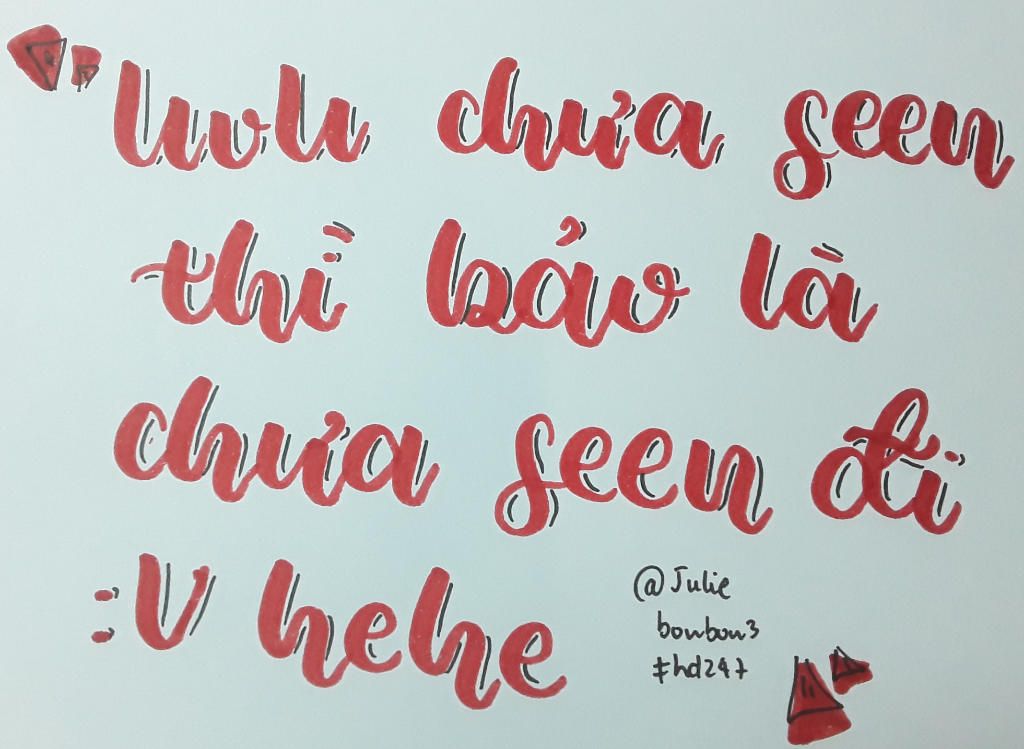 "Uvu chưa seen
thì bảo là
chưa seen đi
:V hehe"
@Julie
bonbon3
#hd247